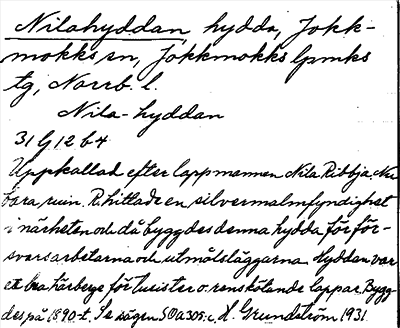 Nilahyddan, hydda, Jokk-
mokks sn, Jokkmokks lpmks
tg, Norrb. l.
Nila-hyddan
31 G 12 b 4
Uppkallad efter lappmannen Nila Ribbja. Nu
bara ruin. R. hittade en silvermalmfyndighet
i närheten och då byggdes denna hydda för för-
svarsarbetarna och utmålsläggarna. Hyddan var
ett bra härberge för turister o. renskötande lappar. Bygg-
des på 1890-t. Se sägen S0a305:c. H. Grundström 1931.